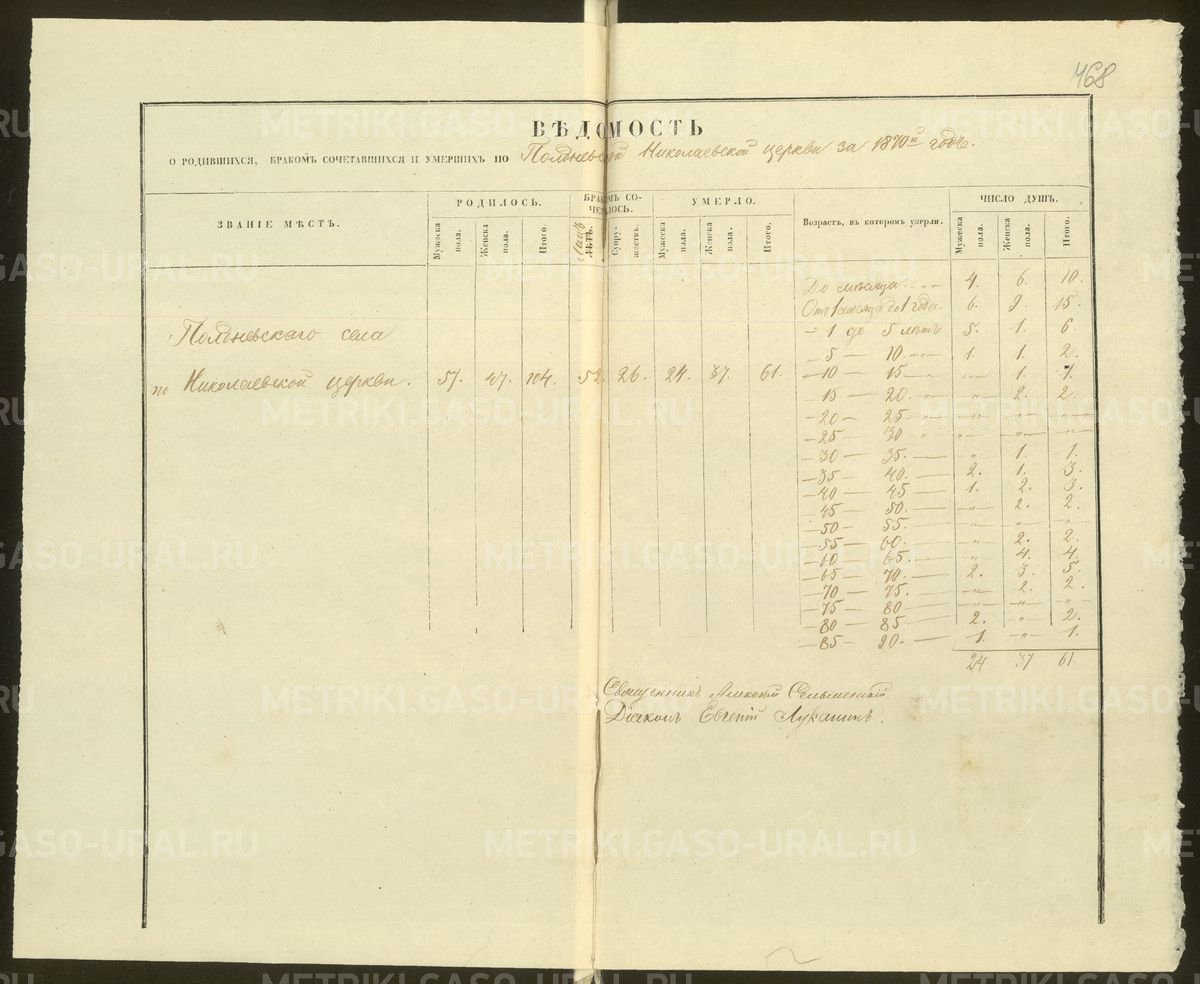 468
ВѢДОМОСТЬ
О РОДИВШИХСЯ, БРАКОМЪ СОЧЕТАВШИХСЯ И УМЕРШИХЪ ПО Полдневской Николаевской церкви за 1870й годъ.
ЗВАНІЕ МѢСТЪ. РОДИЛОСЬ. БРАКОМЪ СОЧЕТАЛОСЬ. УМЕРЛО. Возрастъ, въ которомъ умерли. ЧИСЛО ДУШЪ.
Мужеска пола. Женска пола. Итого. Лицъ Супружествъ. Мужеска пола. Женска пола. Итого. Мужеска пола. Женска пола. Итого.
До мѣсяца. 4. 6. 10.
Отъ 1 мѣсяца до 1 года. 6. 9. 15.
Полдневскаго села
— 1 до 5 лѣтъ 5. 1. 6.
—5— 10.—„— 1. 1. 2.
по Николаевской церкви. 57. 47. 104. 52. 26. 24. 37. 61.
—10— 15—„ —„— 1. 1.
—15— 20.—„ —„— 2. 2.
—20— 25—„ —„— —„— —„—
—25— 30—„ „— —„— —„—
—30— 35.— „ 1. 1.
—35— 40.— 2. 1. 3.
—40— 45— 1. 2. 3.
—45— 50.— —„— 2. 2.
—50— 55.— —„— —„— —„—
—55— 60.— —„— 2. 2.
—60— 65.— „ 4. 4.
—65— 70.— 2. 3. 5.
—70— 75.— —„— 2. 2.
—75— 80— —„— —„— —„—
—80— 85— 2. —„— 2.
—85— 90.— 1. —„— 1.
24 37 61.
Священникъ Алексій
Діаконъ Евгеній Лукашинъ.
METRIKI.GASO-URAL.RU